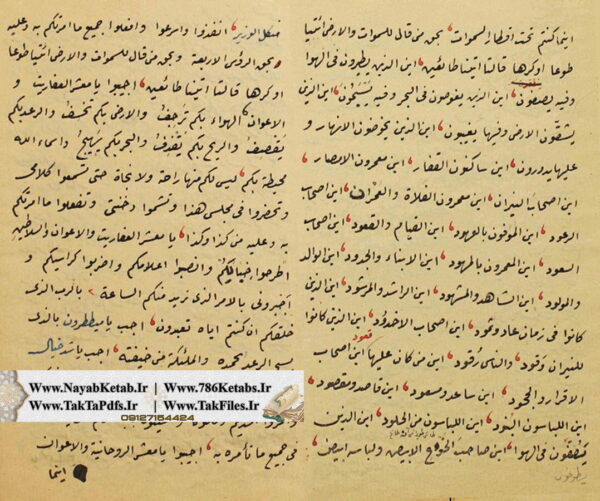 اينما كنتم تحت اقطار السموات بحق من قال للسموات والارض ائتيا
طوعا او كرها قالتا اتينا طائعين اين الذين يطيرون فى الهوا
وفيه اين الذين يغوصون فى البحر وفيه يسبحون اين الذين
يشقون الارض وفيها يغيبون اين الذين يخوضون الانهار و
عليها يدورون اين ساكنون القفار اين معمرون
اين اصحاب النيران اين معمرون الفلاة والعمران اين اصحاب
الرعود اين الموفون بالعهود اين القيام والقعود اين اصحاب
السعود اين المعمرون اين الابناء والجدود اين الوالد
والمولود اين الشاهد والمشهود اين الراشد والمرشود اين الذين
كانوا فى زمان عاد وثمود اين اصحاب الاخدود اين الذين كانوا
للنيران وقود والناس رقود اين من كان عليها قعود اين اصحاب
الاقرار والجحود اين ساعد ومسعود اين قاصد ومقصود
اين اللباسون السود اين اللباسون من الجلود اين الذين
فى الهوا اين صاحب الابيض ولباسه ابيض
منكل الوزير انفذوا واسرعوا وافعلوا جميع ما امرتكم به وعليه
بحق الرؤس الاربعة وبحق من قال للسموات والارض ائتيا طوعا
او كرها قالتا اتينا طائعين اجيبوا يا معشر العفاريت و
الاعوان الهواء بكم ترجف والارض بكم تخسف والرعد بكم
يقصف والريح بكم يقذف والبحر بكم يهيج واسماء الله
محيطة بكم ليس لكم منها راحة ولا نجاة حتى تسمعوا كلامى
وتحضروا فى مجلسى هذا وتشموا دخنتى وتفعلوا ما امرتكم
به وعليه من كذا وكذا يا معشر العفاريت والاعوان والسلاطين
اطرحوا وانصبوا اعلامكم واضربوا كراسيكم و
اخبرونى بالامر الذى نريد منكم الساعة بالرب الذى
خلقكم ان كنتم اياه تعبدون اجب يا ميططرون بالذى
يسبح الرعد بحمده والملئكة من خيفته اجب يا
www.NayabKetab.Ir | www.786Ketabs.Ir
www.TakTaPdfs.Ir | www.TakFiles.Ir
09127154424
فى جميع ما تأمره به اجيبوا يا معشر الروحانية والاعوان
اينما